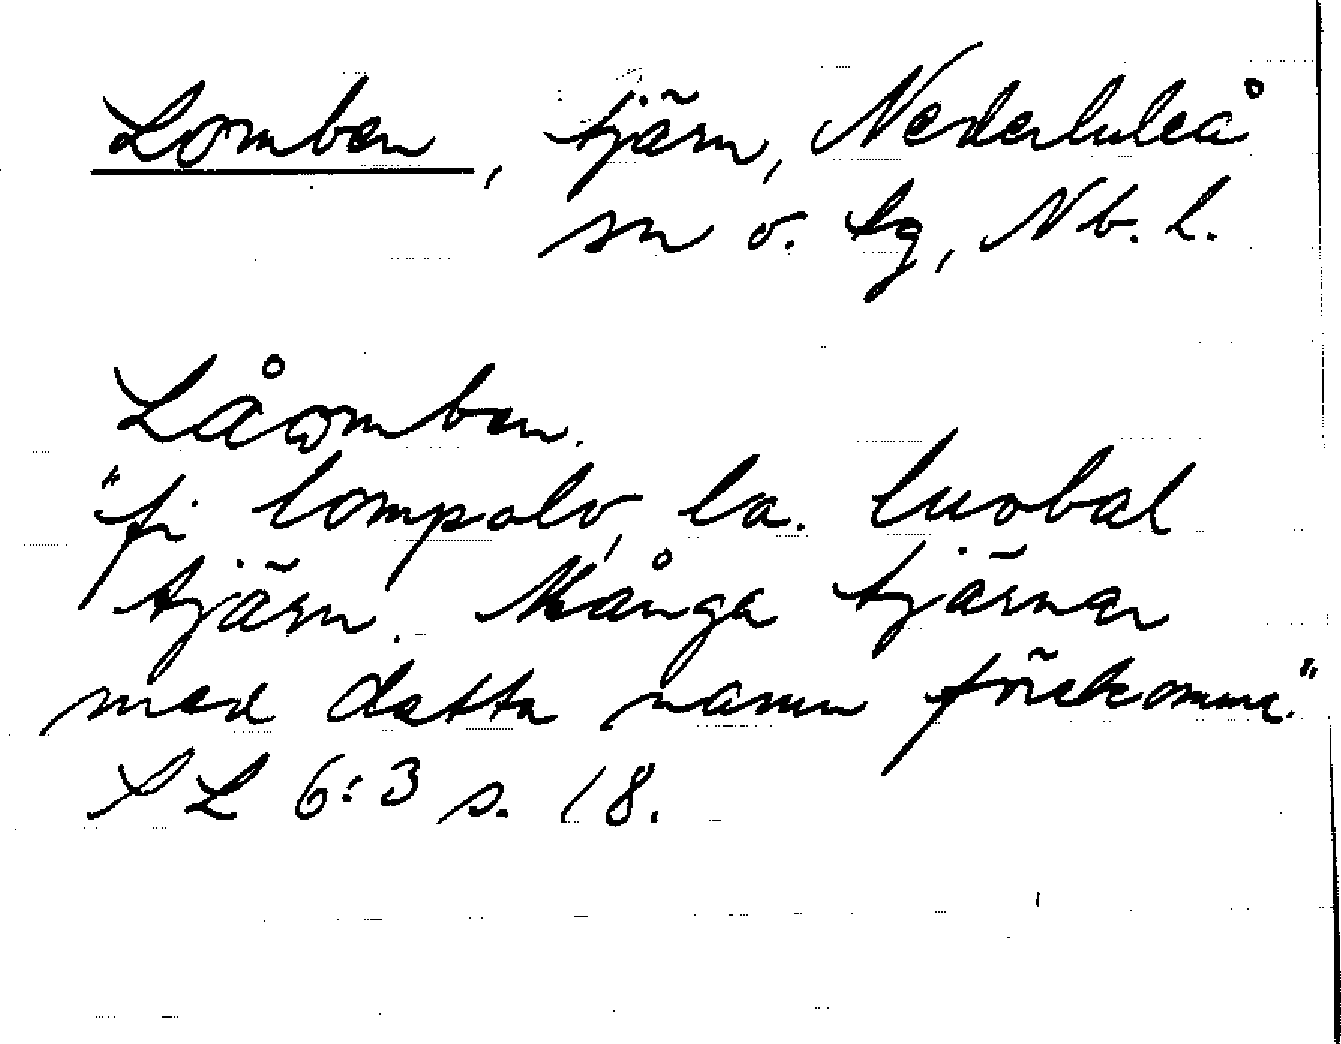 Lomben, tjärn, Nederluleå
sn o. tg, Nb. l.
Låomben.
"fi lompolo, la. luobal
tjärn. Många tjärnar
med detta namn förekomma."
SL 6:3 s. 18.